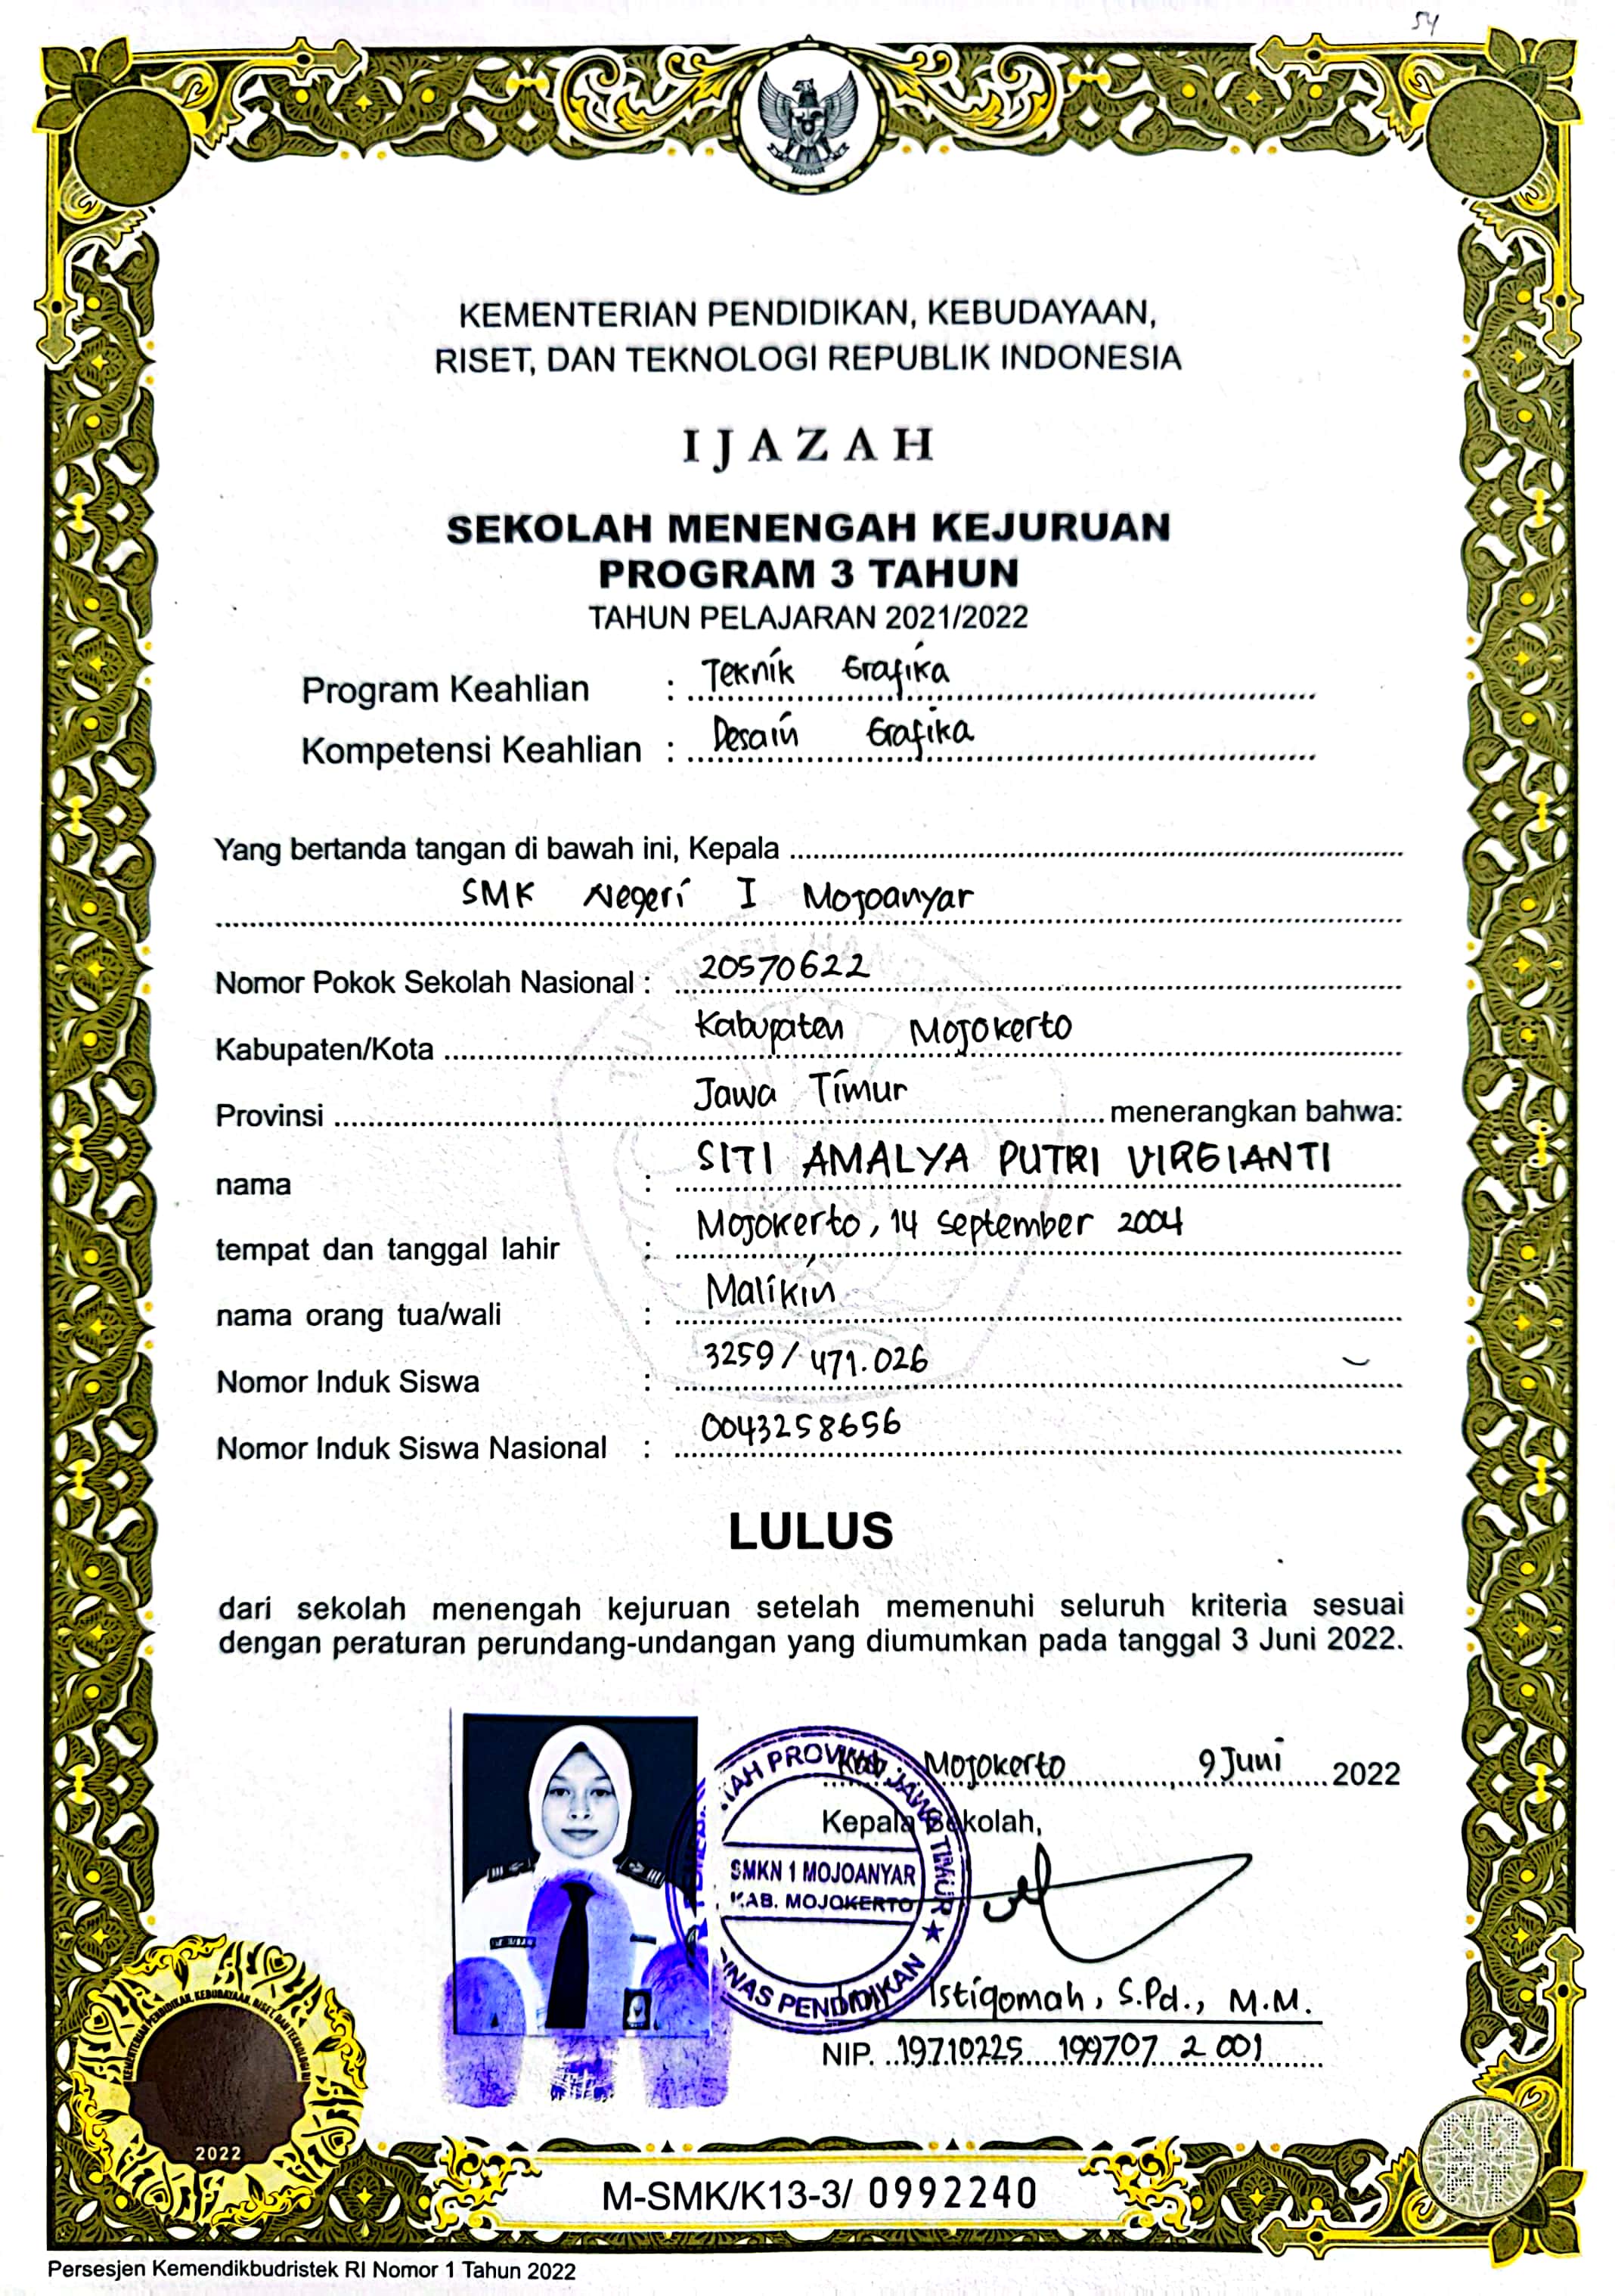 54
KEMENTERIAN PENDIDIKAN, KEBUDAYAAN,
RISET, DAN TEKNOLOGI REPUBLIK INDONESIA
IJAZAH
SEKOLAH MENENGAH KEJURUAN
PROGRAM 3 TAHUN
TAHUN PELAJARAN 2021/2022
Program Keahlian : Teknik Grafika
Kompetensi Keahlian : Desain Grafika
Yang bertanda tangan di bawah ini, Kepala
SMK Negeri I Mojoanyar
Nomor Pokok Sekolah Nasional : 20570622
Kabupaten/Kota Kabupaten Mojokerto
Provinsi Jawa Timur menerangkan bahwa:
nama : SITI AMALYA PUTRI VIRGIANTI
tempat dan tanggal lahir : Mojokerto, 14 September 2004
nama orang tua/wali : Malikin
Nomor Induk Siswa : 3259 / 471.026
Nomor Induk Siswa Nasional : 0043258656
LULUS
dari sekolah menengah kejuruan setelah memenuhi seluruh kriteria sesuai
dengan peraturan perundang-undangan yang diumumkan pada tanggal 3 Juni 2022.
Kab. Mojokerto, 9 Juni 2022
Kepala Sekolah,
SMKN 1 MOJOANYAR
KAB. MOJOKERTO
JAWA TIMUR
DINAS PENDIDIKAN
Istiqomah, S.Pd., M.M.
NIP. 19710225 199707 2 001
KEMENTERIAN PENDIDIKAN, KEBUDAYAAN, RISET, DAN TEKNOLOGI
2022
M-SMK/K13-3/ 0992240
Persesjen Kemendikbudristek RI Nomor 1 Tahun 2022